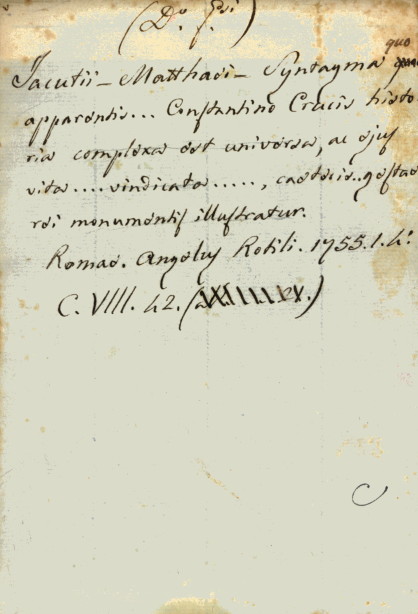 (Do. f. soi)
Jacutii – Matthaei – Syntagma quo
apparentis... Constantino Crucis histo
ria complexa est universa, ac ejus
vita .... vindicata ....., caeteris.. gestae
rei monumentis illustratur.
Romae. Angelus Rotili. 1755. 1. 4:
C. VIII. 42. (